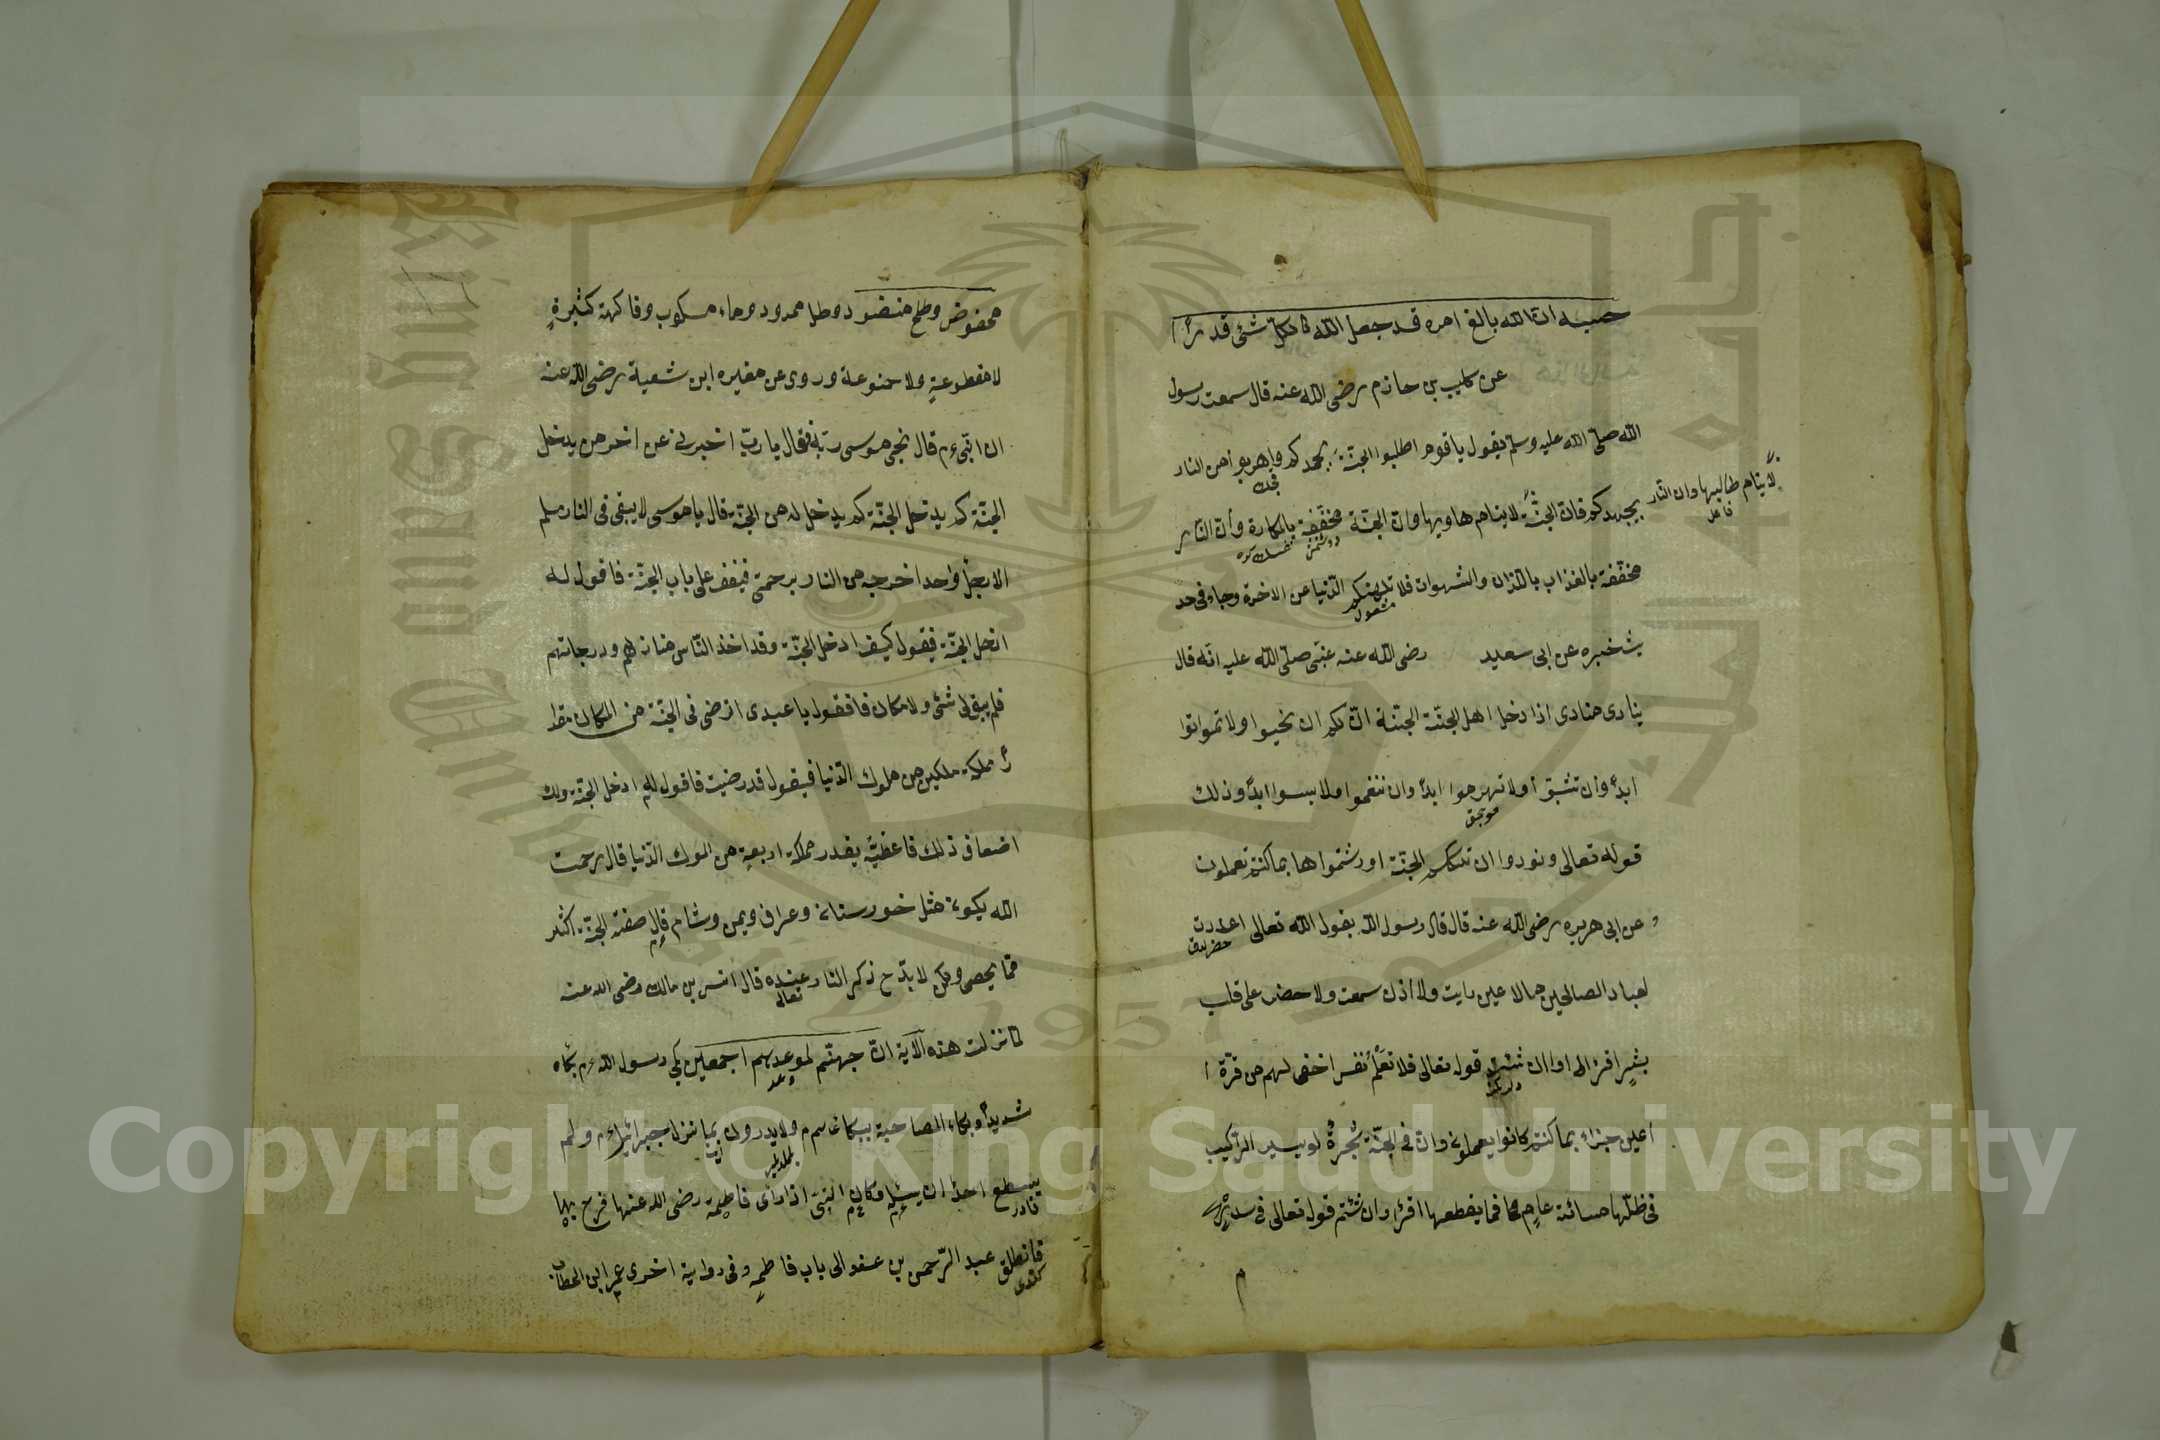 حسبه ان الله بالغ امره قد جعل الله لكل شئ قدرًا
عن كليب بن حازم رضى الله عنه قال سمعت رسول
الله صلى الله عليه وسلم يقول يا قوم اطلبوا الجنّة بجهدكم واهربوا من النار
بجهدكم فان الجنّة لا ينام هاويها وان الجنّة مخففة بالمكارة وأن النار
لا ينام طالبها وان النار
مخففة بالغذاب باللذان والشهوات فلا تلهينكم الدّنيا عن الاخرة وجاء فى حد
مشغول
يث خبره عن ابى سعيد رضى الله عنه عنبّى صلّى الله عليه انّه قال
ينادى منادى اذا دخل اهل الجنّة الجنّة انّ لكم ان تحيوا ولا تموتوا
ابدًا وان تشبوا ولا تهرموا ابدًا وان تنغموا ولا يبسوا ابدًا وذلك
قوله تعالى ونودوا ان تلكم الجنّة اورثتموها بما كنتم تعملون
وعن ابى هريره رضى الله عنه قال قال رسول الله يقول الله تعالى اعددت
لعباد الصالحين مالا عين رايت ولا اذن سمعت ولا حضر على قلب
بشر اقرؤا ان شئتم قوله تعالى فلا تعلم نفس اخفى لهم من قرّة ا
أعين جزاء بما كنتم كانوا يعملون وان فى الجنّة شجرةً لو يسير الرّاكب
فى ظلّها مسائة عام فما يقطعها اقرؤا ان شئتم قوله تعالى فى سدر
محفوض وطلح منضود وظل ممدود وماء مسكوب وفاكهة كثيرةٍ
لا مقطوعةٍ ولا ممنوعة وروى عن مغيره ابن شعبة رضى الله عنه
ان النبى م قال نجى موسى ربّه فقال يا ربّ اخبرنى عن اخر من يدخل
الجنّة كم يدخل الجنّة كم يدخل له من الجنّة قال يا موسى لا يبقى فى النار مسلم
الا رجل واحد اخرجه من النار برحمتى فيقف على باب الجنّة فاقول له
ادخل الجنّة فيقول كيف ادخل الجنّة وقد اخذ النّاس منازلهم ودرجاتهم
فلم يبق لى شئ ولا مكان فاقول يا عبدى ارضى فى الجنّة من المكان مقد
رًا مملكة ملكين من ملوك الدّنيا فيقول قد رضيت فاقول له ادخل الجنّة ولك
اضعاف ذلك فاعطيته بقدر مملكة اربعة من الموك الدّنيا قال رحمت
الله يكون مثل خورستان وعراق ويمن وشام قال صفة الجنّة اكثر
ممّا يحصى ولكن لا بدّ ح ذكر النار عنده قال انس بن مالك رضى الله عنه
تعالى
لما نزلت هذه الآية انّ جهنّم لموعدهم اجمعين بكى رسول الله م بكاء
شديدًا وبكاء الصاحبة ببكائه م ولا يدرون بما نزل جبرائيل م ولم
يسطع احدًا ان يسئله وكان النبى اذا رأى فاطمة رضى الله عنها فرح بها
قادر
فانطلق عبد الرّحمن بن عفو الى باب فاطمه وفى رواية اخرى عمر ابن الخطاب
كتدى
Copyright © King Saud University
King Saud University
جامعة الملك سعود
1957